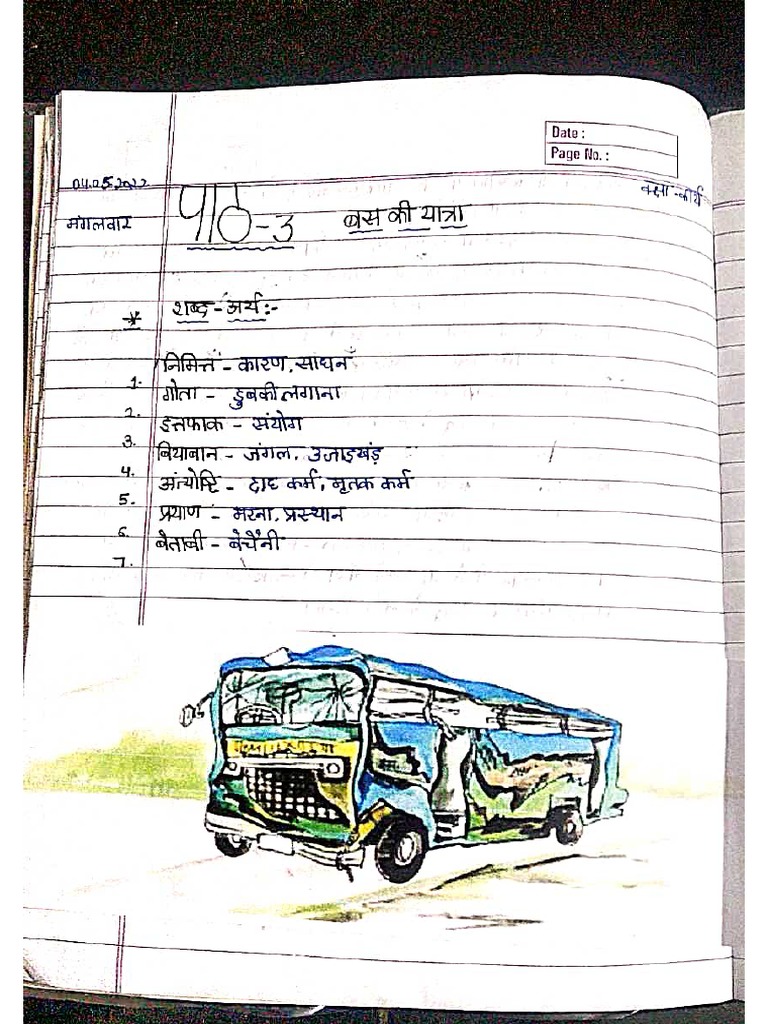 Date :
Page No. :
04.05.2022
कक्षा-कार्य
मंगलवार
पाठ-3 बस की यात्रा
* शब्द-अर्थ:-
1. निमित्त - कारण, साधन
2. गोता - डुबकी लगाना
3. इत्तफाक - संयोग
4. बियाबान - जंगल, उजाड़खंड
5. अंत्येष्टि - दाह कर्म, मृतक कर्म
6. प्रयाण - मरना, प्रस्थान
7. बेताबी - बेचैनी